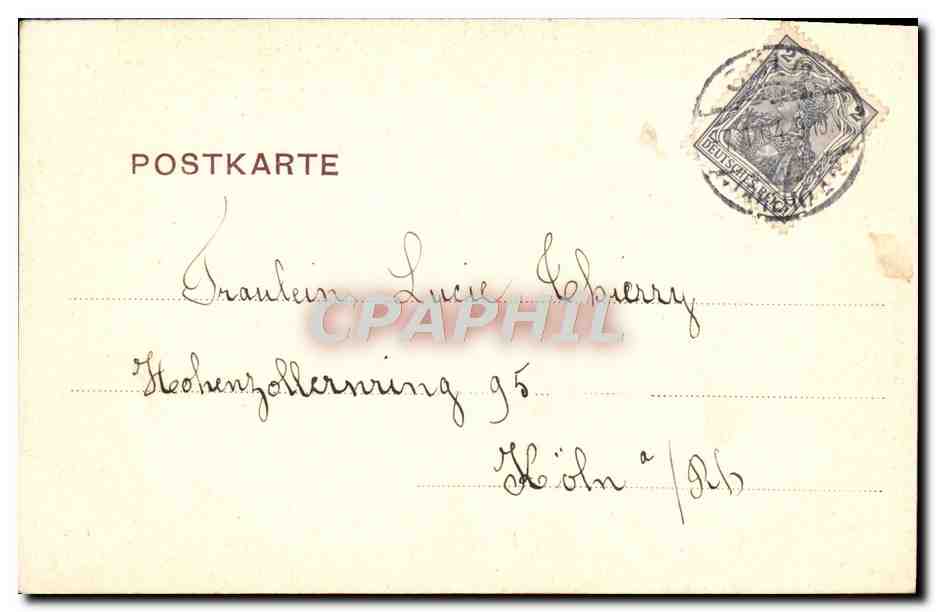 2 2
DEUTSCHES REICH
POSTKARTE
Fraulein Lucie Thierry
CPAPHIL
Hohenzollernring 95
Köln a/Rh